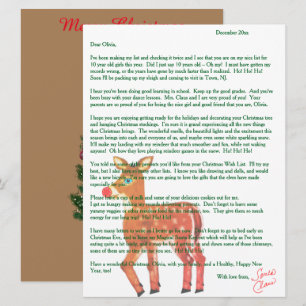 Merry Christmas
December 20xx
Dear Olivia,
I've been making my list and checking it twice and I see that you are on my nice list for
10 year old girls this year. Did I just say 10 years old – Oh my! I must have gotten my
records wrong, or the years have gone by much faster than I realized. Ho! Ho! Ho!
Soon I'll be packing up my sleigh and coming to visit in Town, NJ.
I hear you've been doing good learning in school. Keep up the good grades. And you've
been busy with your dance lessons. Mrs. Claus and I are very proud of you. Your
parents are so proud of you for being the nice girl and good friend that you are, Olivia,
I hope you are enjoying getting ready for the holidays and decorating your Christmas tree
and hanging Christmas stockings. I'm sure it is grand experiencing all the new things that
Christmas brings. The wonderful smells, the beautiful lights and the excitement this
season brings into each and everyone of us, and maybe even some white sparkling snow.
It'll make my landing with my reindeer that much smoother and fun, while not waking
anyone! Oh how they love playing reindeer games in the snow. Ho! Ho! Ho!
You told me some of the presents you'd like from your Christmas Wish List. I'll try my
best, but I also have lots of other letters. I know you like drawing and dolls, and would
like a new bike. I'm sure you are going to love the gifts that the elves have made
especially for you.
Please have a cup of milk and some of your delicious cookies out for me.
I get so hungry making so many deliveries. Ho! Ho! Ho! Don't forget to leave some
yummy veggies or other tasty food for the reindeer, too. They give them so much
energy for our long trip! Ho! Ho! Ho!
I have many letters to write so I better go for now. Don't forget to go to bed early on
Christmas Eve, and to leave my Magical Santa Key out which will help as I've been
eating quite a bit lately, and it may be hard getting up and down some of those chimneys,
some of them are so tiny you see. Ho! Ho! Ho!
I wish you and your family a very Merry Christmas, and a Healthy, Happy New
Year, too!
With love from,
Santa
Claus